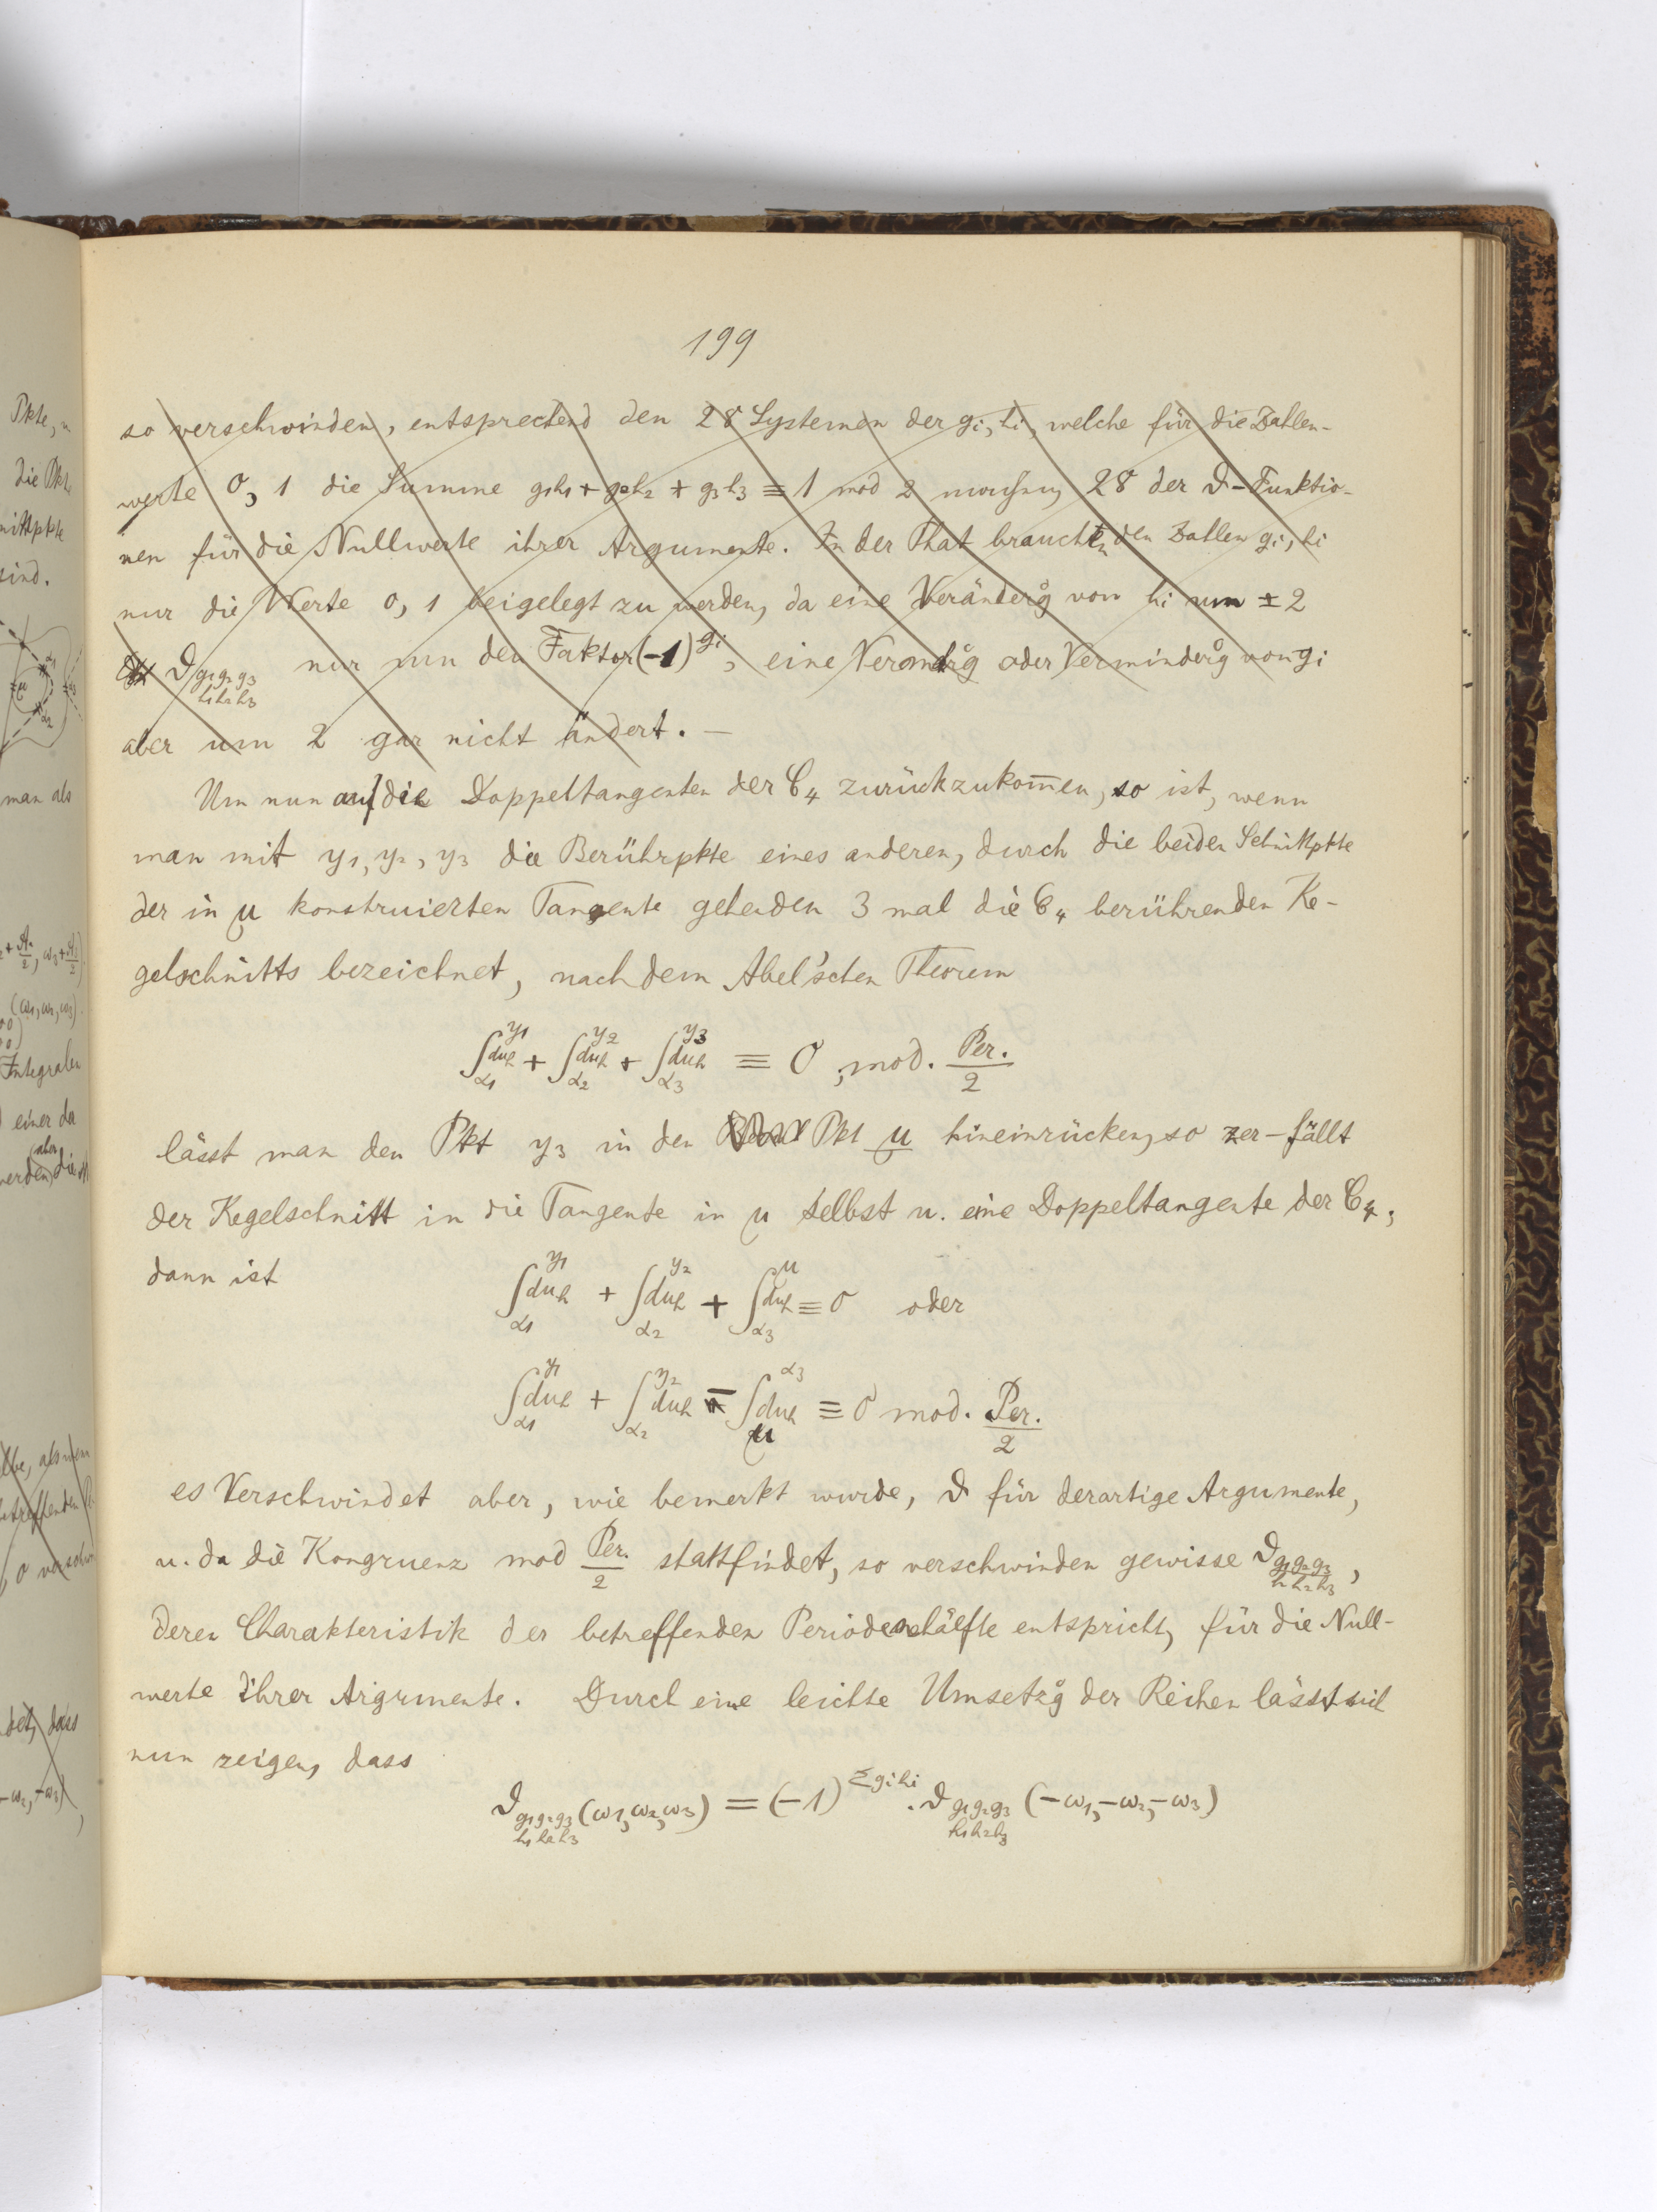 199
so verschwinden, entsprechend den 28 Systemen der gi, hi, welche für die Zahlen-
werte 0, 1 die Summe g1h1 + g2h2 + g3h3 ≡ 1 mod 2 machen, 28 der ϑ-Funktio-
nen für die Nullwerte ihrer Argumente. In der That brauchen den Zahlen gi, hi
nur die Werte 0, 1 beigelegt zu werden, da eine Veränderg von hi um ± 2
ϑ g1g2g3 h1h2h3 nur um den Faktor (-1)^gi, eine Verändrg oder Verminderg von gi
aber um 2 gar nicht ändert. —
Um nun auf die Doppeltangenten der C4 zurückzukom̅en, so ist, wenn
man mit y1, y2, y3 die Berührpkte eines anderen, durch die beiden Schnittpkte
der in μ konstruierten Tangente gehenden 3 mal die C4 berührenden Ke-
gelschnitts bezeichnet, nach dem Abel'schen Theorem
∫_{α1}^{y1} du_h + ∫_{α2}^{y2} du_h + ∫_{α3}^{y3} du_h ≡ 0, mod. Per./2
lässt man den Pkt y3 in den Pkt μ hineinrücken, so zer-fällt
der Kegelschnitt in die Tangente in μ selbst u. eine Doppeltangente der C4,
dann ist ∫_{α1}^{y1} du_h + ∫_{α2}^{y2} du_h + ∫_{α3}^{μ} du_h ≡ 0 oder
∫_{α1}^{y1} du_h + ∫_{α2}^{y2} du_h - ∫_{μ}^{α3} du_h ≡ 0 mod. Per./2
es Verschwindet aber, wie bemerkt wurde, ϑ für derartige Argumente,
u. da die Kongruenz mod Per./2 stattfindet, so verschwinden gewisse ϑ g1g2g3 h1h2h3,
deren Charakteristik der betreffenden Periodenhälfte entspricht, für die Null-
werte ihrer Argumente. Durch eine leichte Umsetzg der Reihen lässt sich
nun zeigen, dass
ϑ g1g2g3 h1h2h3 (ω1, ω2, ω3) = (-1)^{Σ gihi} . ϑ g1g2g3 h1h2h3 (-ω1, -ω2, -ω3)